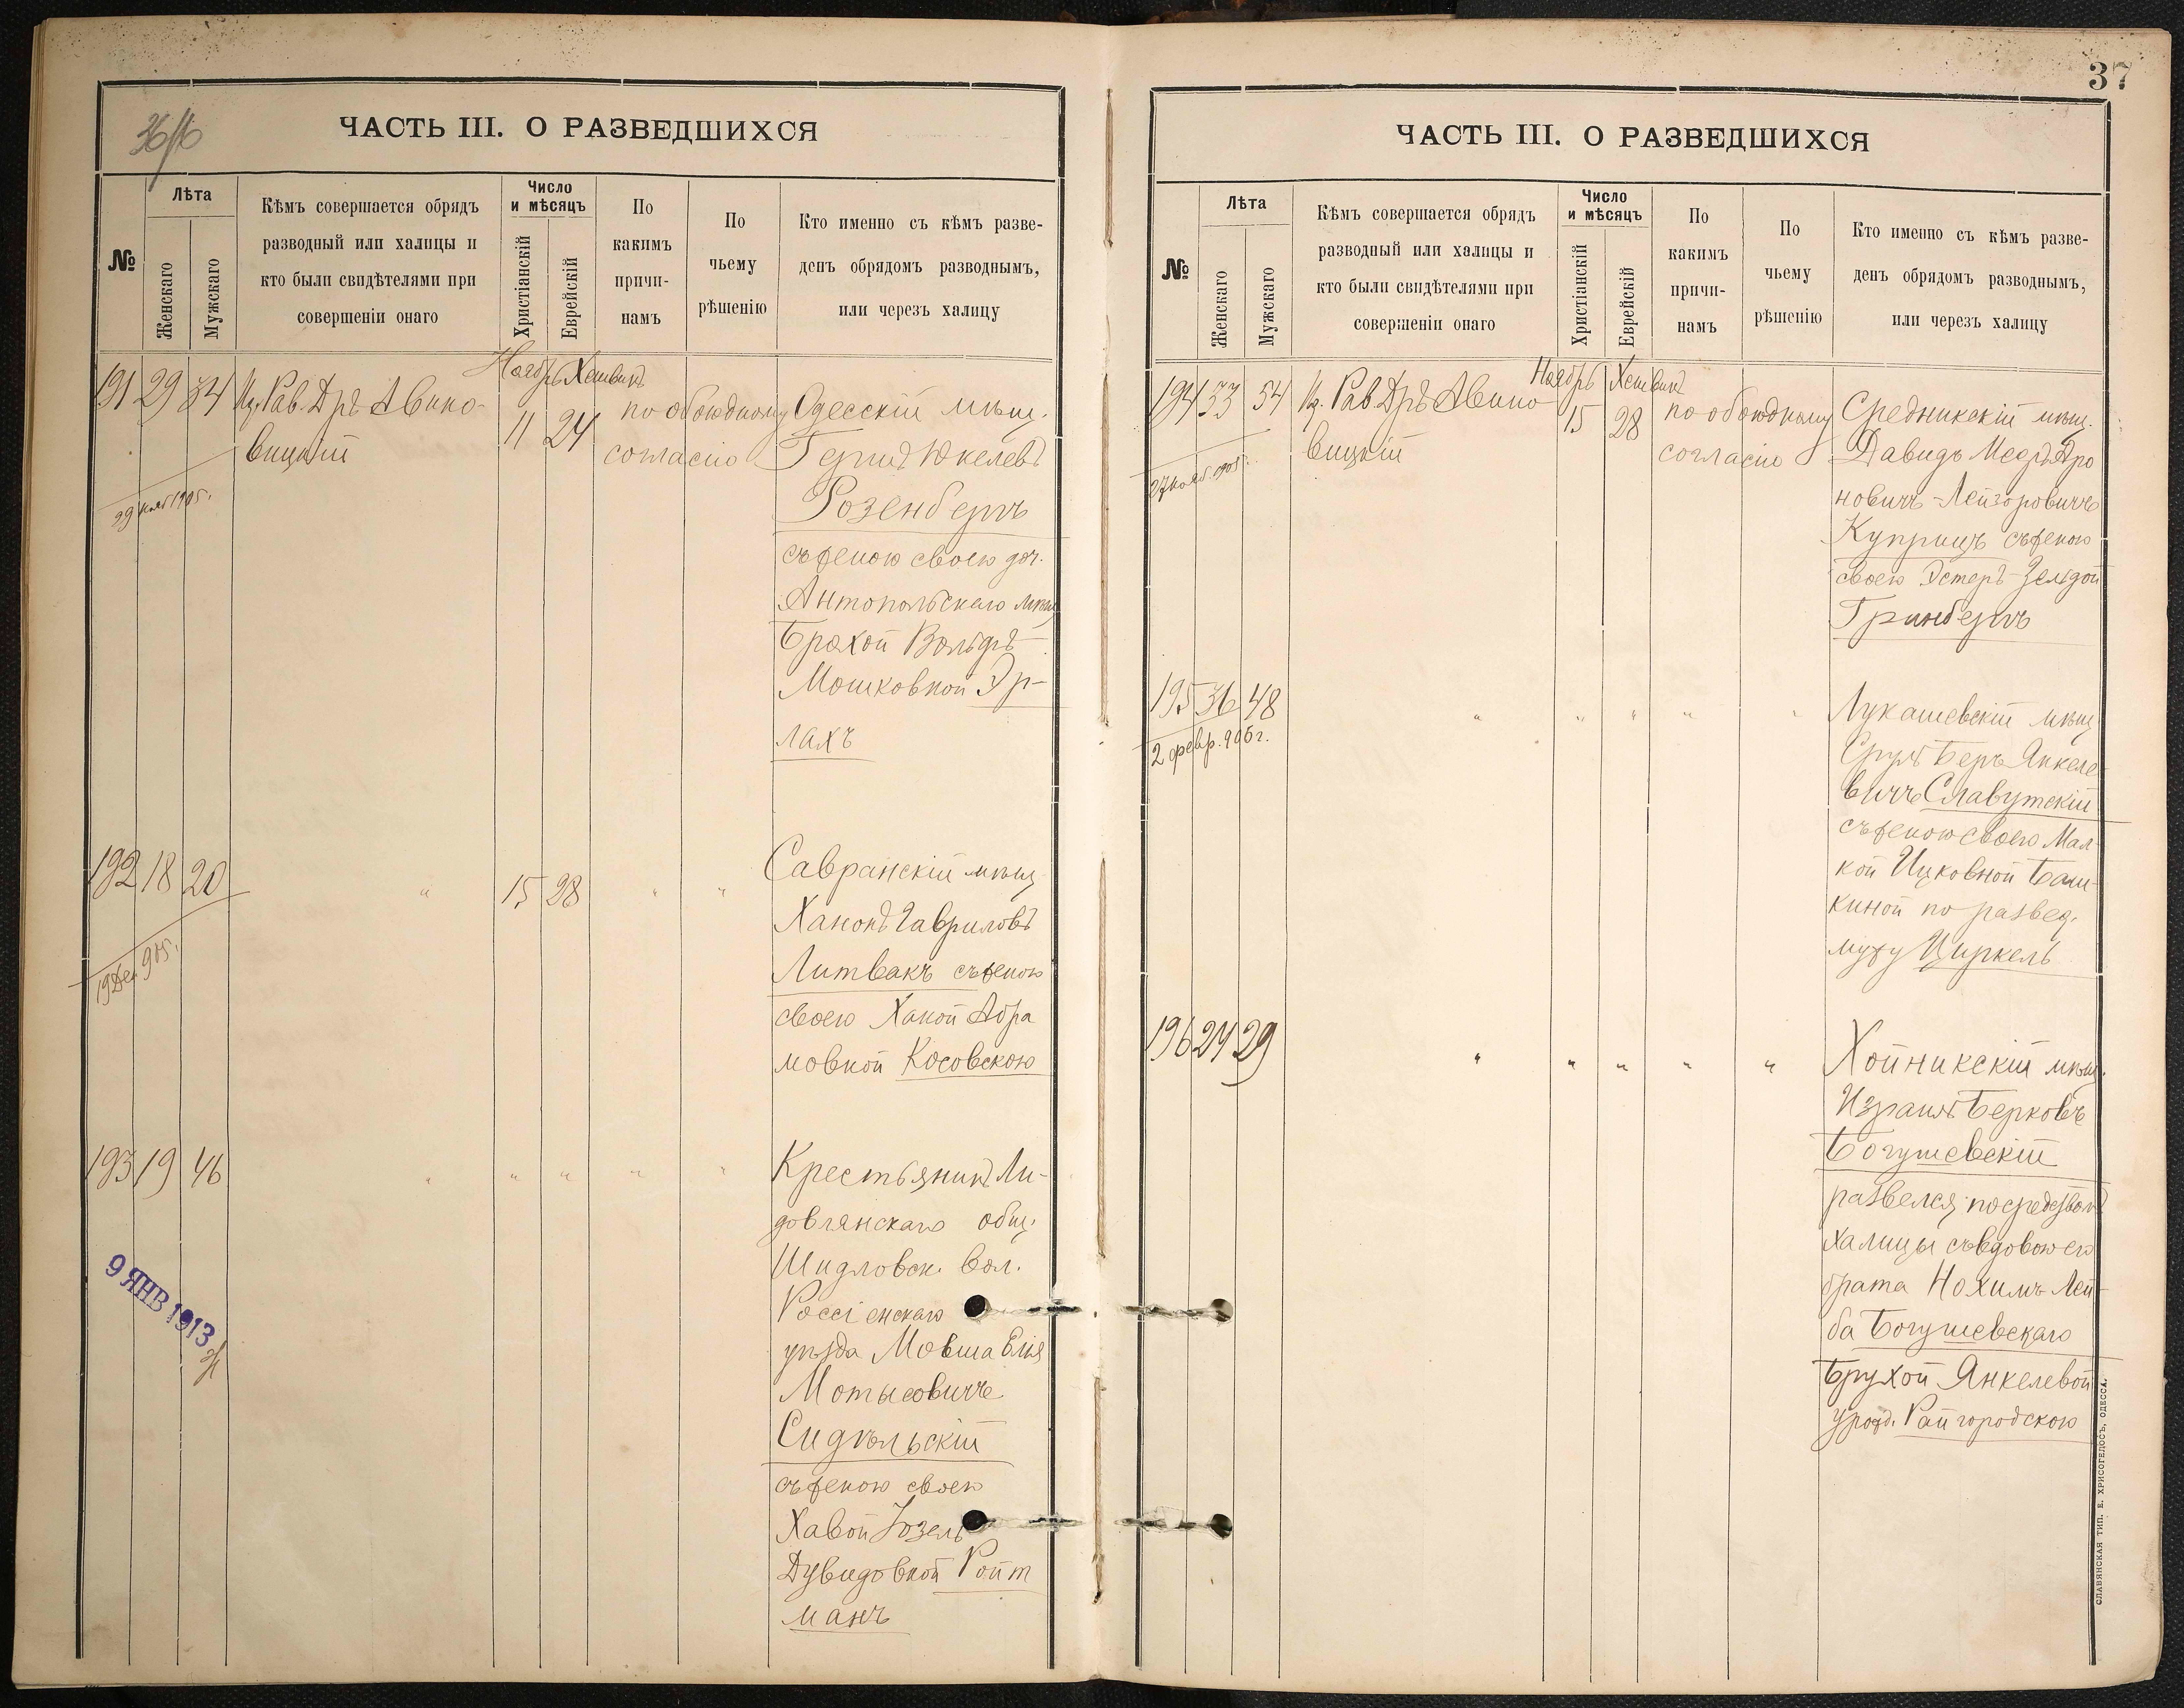 36/16
ЧАСТЬ III. О РАЗВЕДШИХСЯ
№
Лѣта
Женскаго
Мужскаго
Кѣмъ совершается обрядъ
разводный или халицы и
кто были свидѣтелями при
совершеніи онаго
Число
и мѣсяцъ
Христіанскій
Еврейскій
По
какимъ
причи-
намъ
По
чьему
рѣшенію
Кто именно съ кѣмъ разве-
денъ обрядомъ разводнымъ,
или черезъ халицу
Ноябрь Хешванъ
191 29 34 Из. Рав. Дръ Авино-
вицкій
11 24
по обоюдному
согласію
Одесскій мѣщ.
Гершъ Юкелевъ
Розенбергъ
съ женою своею доч.
Антопольскаго мѣщ
Брахой Вольфъ-
Мошковной Эр-
лахъ
29 нояб 1905 г.
192 18 20 " 15 28 " "
Савранскій мѣщ
Ханонъ Гавриловъ
Литвакъ съ женою
своею Ханой Абра
мовной Косовскою
19 Дек. 905 г.
193 19 46 " " " " "
Крестьянинъ Ли-
довлянскаго общ.
Шидловск. вол.
Россіенскаго
уѣзда Мовша Елія
Мотысовичъ
Сидѣльскій
съ женою своею
Хавой Юзель
Дувидовной Ройт
манъ
9 ЯНВ 1913
37
ЧАСТЬ III. О РАЗВЕДШИХСЯ
№
Лѣта
Женскаго
Мужскаго
Кѣмъ совершается обрядъ
разводный или халицы и
кто были свидѣтелями при
совершеніи онаго
Число
и мѣсяцъ
Христіанскій
Еврейскій
По
какимъ
причи-
намъ
По
чьему
рѣшенію
Кто именно съ кѣмъ разве-
денъ обрядомъ разводнымъ,
или черезъ халицу
Ноябрь Хешванъ
194 33 54 Из. Рав Дръ Авино
вицкій
15 28
по обоюдному
согласію
Средникскій мѣщ.
Давидъ Мееръ Аро
новичъ-Лейзоровичъ
Куприцъ съ женою
своею Эстеръ-Зельдой
Гринбергъ
27 нояб. 1905 г.
195 36 48 " " " " "
Лукашевскій мѣщ
Сруль Беръ Янкеле-
вичъ Славутскій
съ женою своею Мал-
кой Ицковной Баш-
киной по развед.
мужу Циркель
2 февр. 906 г.
196 24 29 " " " " "
Хойникскій мѣщ.
Израиль Берковъ
Богушевскій
развелся посредством
халицы съ вдовою его
брата Нохимъ Лей-
ба Богушевскаго
Брухой Янкелевой
урожд. Райгородскою
СЛАВЯНСКАЯ ТИП. Е. ХРИСОГЕЛОСЪ, ОДЕССА.